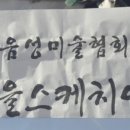 음성미술협회
울스케치